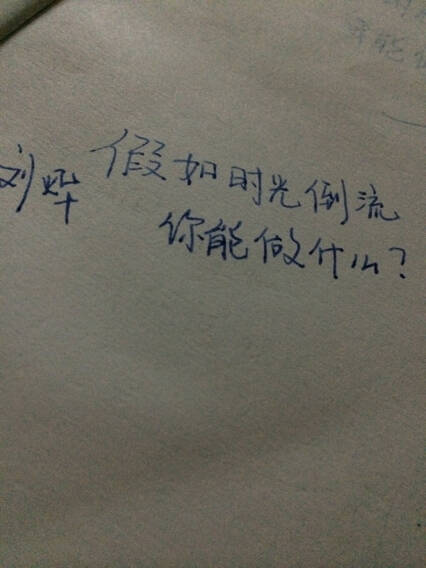 刘烨 假如时光倒流
你能做什么?